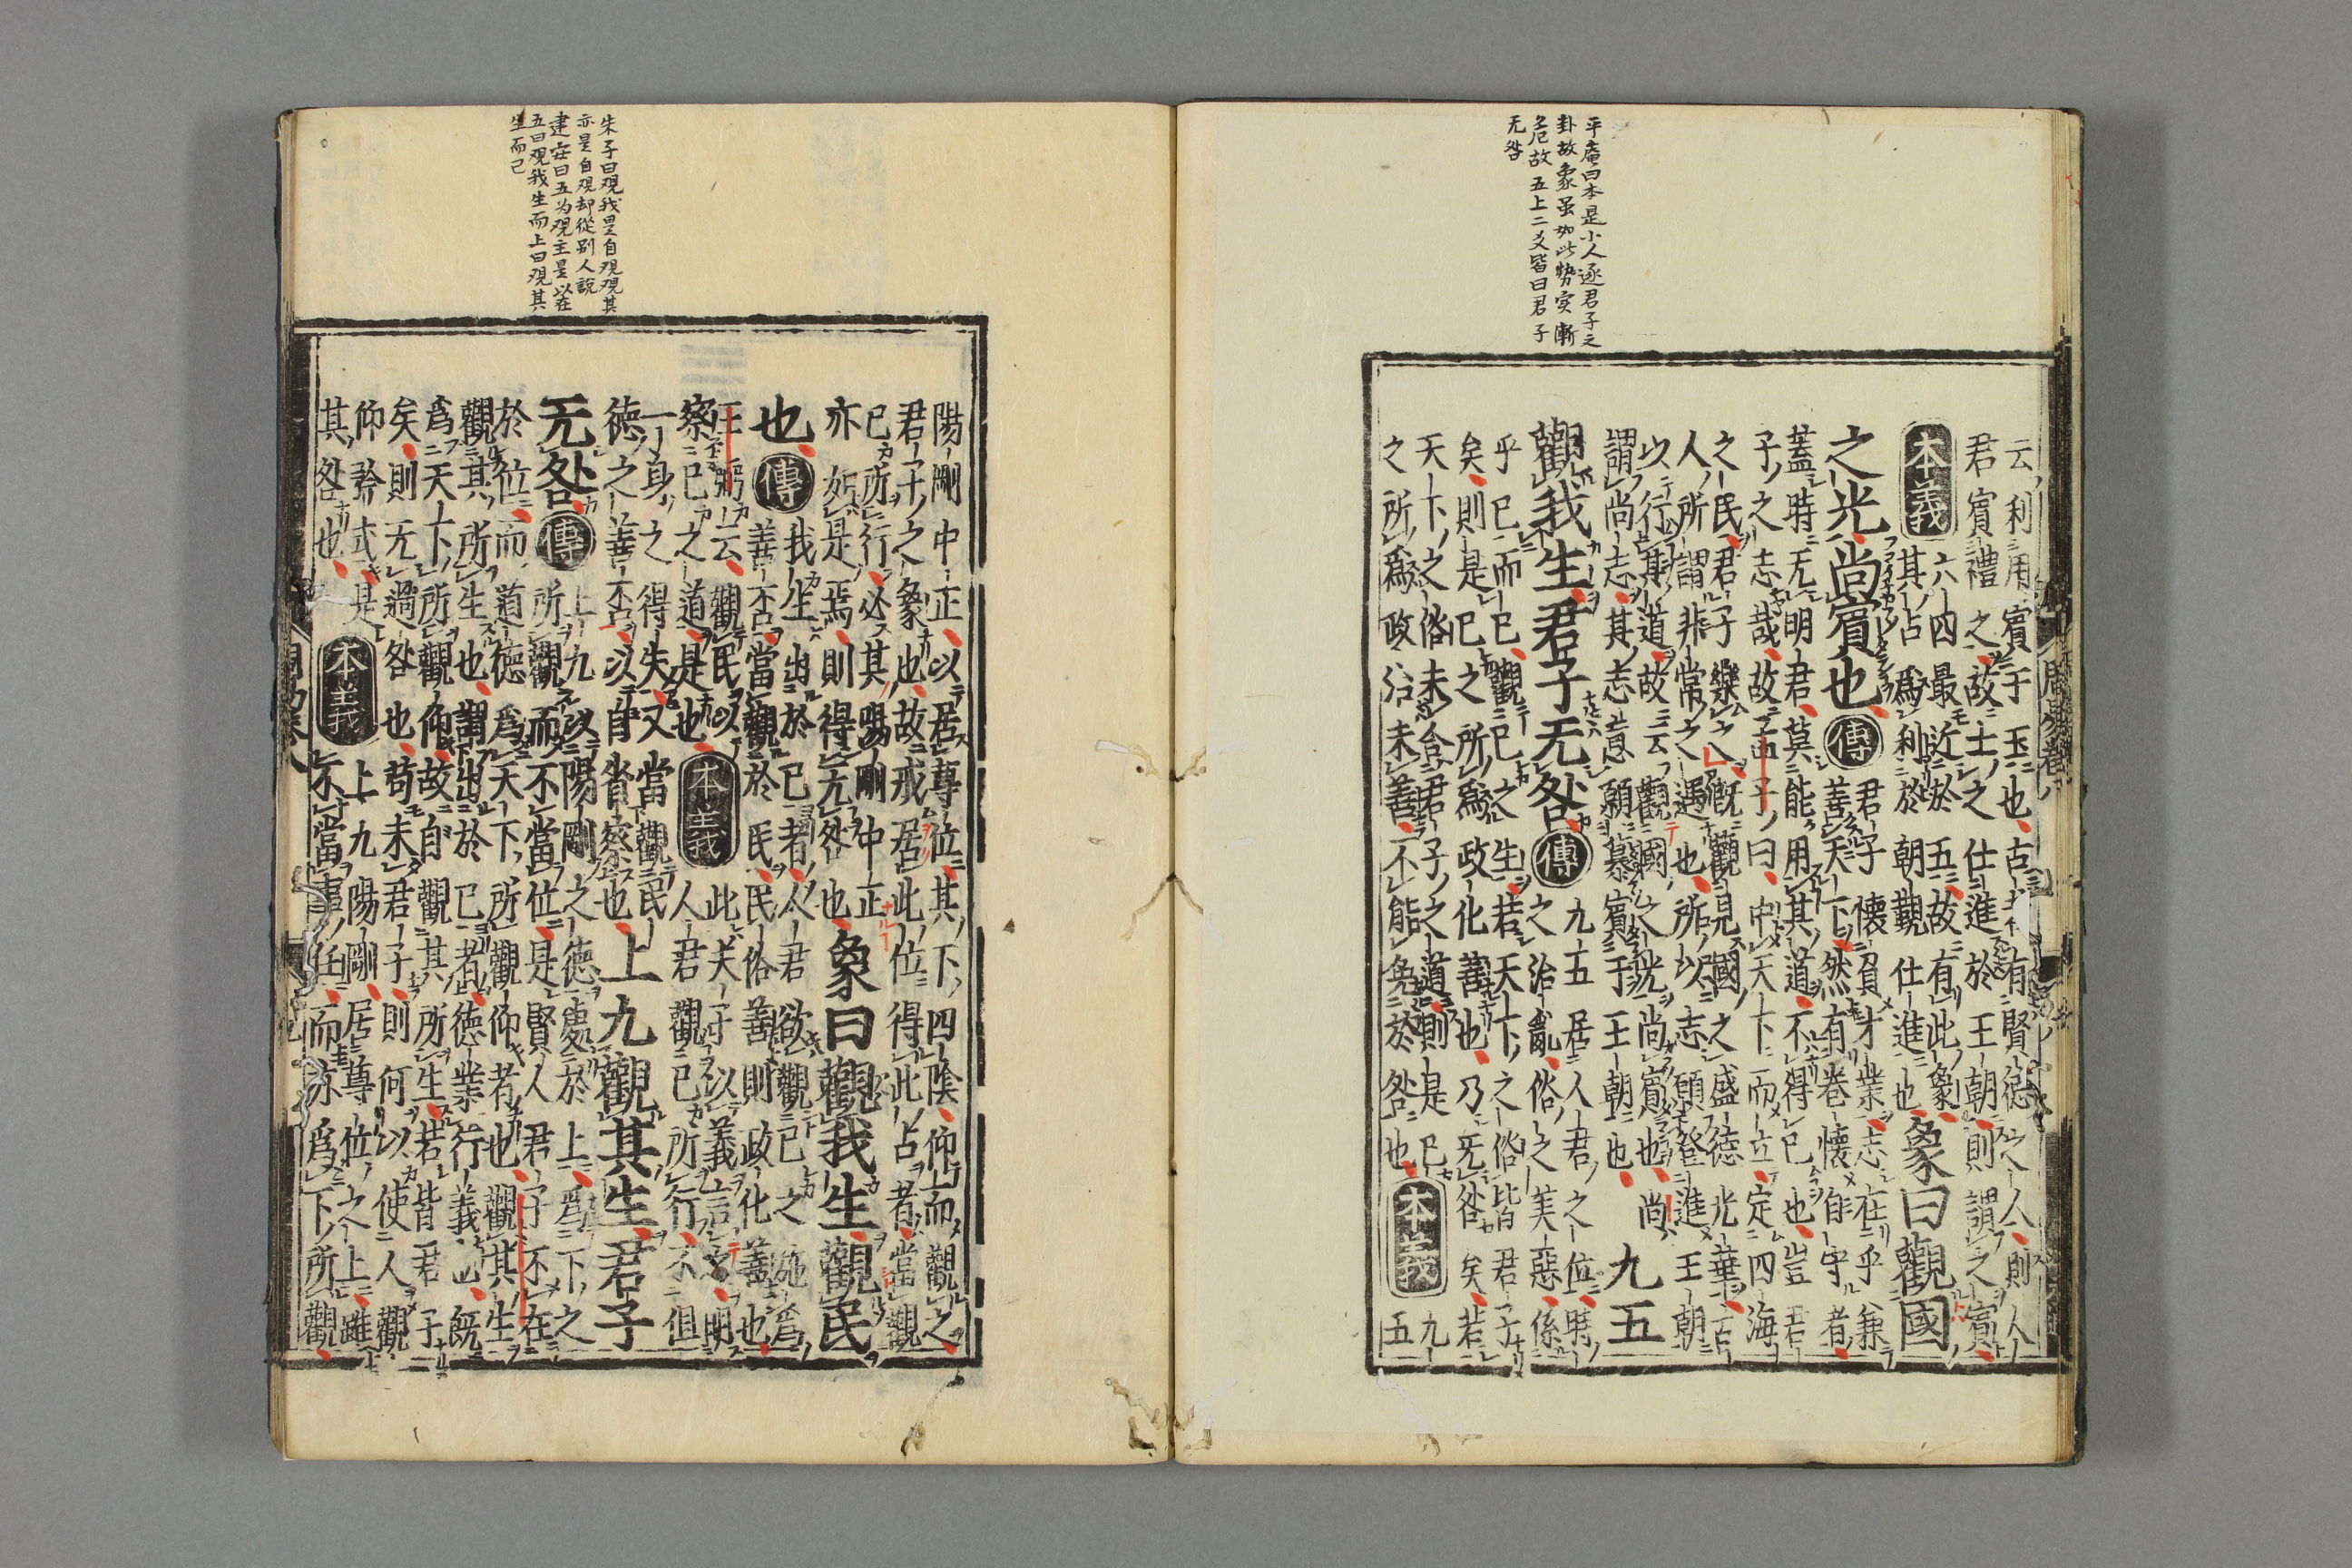 平庵曰本是小人逐君子之
卦故象虽如此勢实漸
危故五上二爻皆曰君子
无咎
云利用賓于王也古者有賢德之人則人
君賓禮之故士之仕進於王朝則謂之賓
本義 六四最近於五故有此象
其占爲利於朝覲仕進也 象曰觀國
之光尚賓也 傳 君子懷負才業志在乎兼
善天下然有卷懷自守者
蓋時无明君莫能用其道不得已也豈君
子之志哉故孟子曰中天下而立定四海
之民君子樂之既觀見國之盛德光華古
人所謂非常之遇也所以志願登進王朝
以行其道故云觀國之光尚賓也尚
謂尚志其志意願慕賓于王朝也 九五
觀我生君子无咎 傳 九五居人君之位時
之治亂俗之美惡係
乎己而已觀己之生若天下之俗皆君子
矣則是己之所爲政化善也乃无咎矣若
天下之俗未合君子之道則是己
之所爲政治未善不能免於咎也 本義 九
五
朱子曰观我是自观观其
亦是自观却從别人說
建安曰五为观主是以在
五曰观我生而上曰观其
生而已
陽剛中正以居尊位其下四陰仰而觀之
君子之象也故戒居此位得此占者當觀
己所行必其陽剛中正
亦如是焉則得无咎也 象曰觀我生觀民
也 傳 我生出於己者人君欲觀己之施爲
善否當觀於民民俗善則政化善也
王弼云觀民以
察己之道是也 本義 此夫子以義言之明
人君觀己所行不但
一身之得失又當觀民
德之善否以自省察也 上九觀其生君子
无咎 傳 上九以陽剛之德處於上爲下之
所觀而不當位是賢人君子不在
於位而道德爲天下所觀仰者也觀其生
觀其所生也謂出於己者德業行義也既
爲天下所觀仰故自觀其所生若皆君子
矣則无過咎也苟未君子則何以使人觀
仰矜式是
其咎也 本義 上九陽剛居尊位之上雖
不當事任而亦爲下所觀